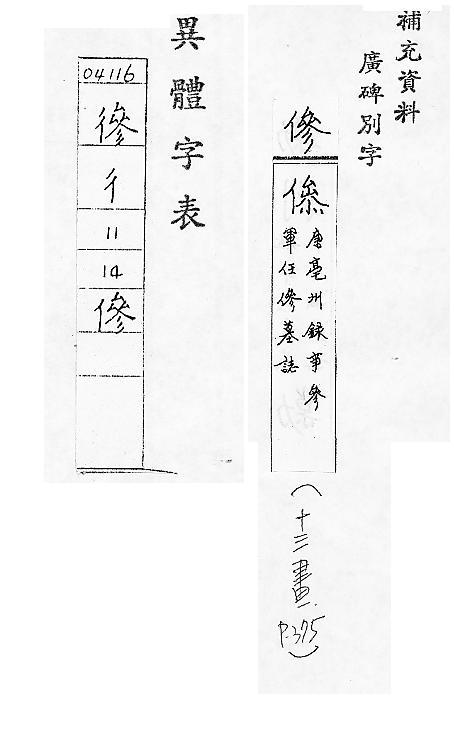 補充資料
廣碑別字
傪
唐亳州録事參
軍任傪墓誌
(十三畫 P.375)
異體字表
04116
彳
11
14
傪